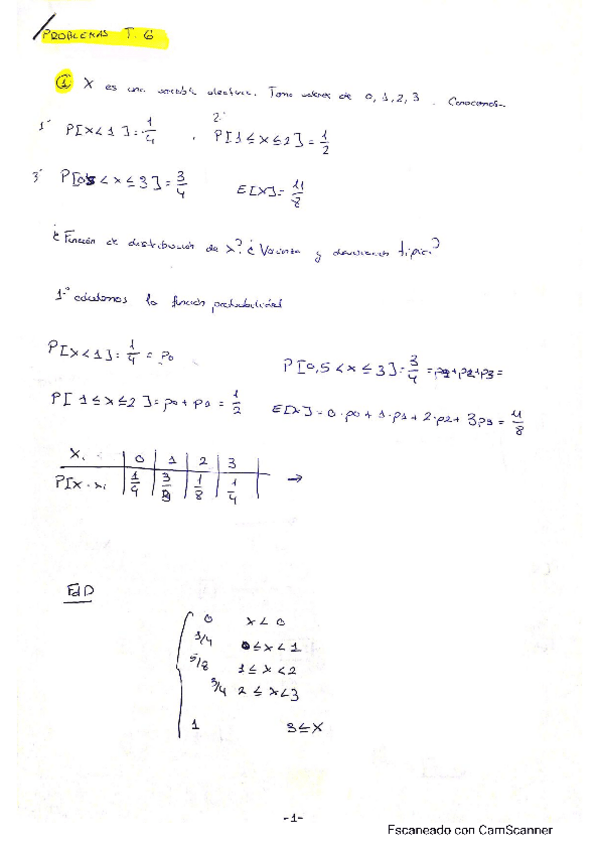 PROBLEMAS T. 6
① X es una variable aleatoria. Toma valores de 0, 1, 2, 3. Conocemos
1º P[X<1]=1/4 . 2º P[1≤x≤2]=1/2
3º P[0,5<x≤3]=3/4 E[X]=11/8
¿Función de distribución de x? ¿Varianza y desviación típica?
1º calculamos la función probabilidad
P[X<1]=1/4=p0
P[0,5<x≤3]=3/4=p1+p2+p3=
P[1≤x≤2]=p0+p0=1/2
E[X]=0·p0+1·p1+2·p2+3p3=11/8
Xi 0 1 2 3
P[X=xi 1/4 3/8 1/8 1/4 →
FdD
0 x<0
1/4 0≤x<1
5/8 1≤x<2
3/4 2≤x<3
1 3≤X
-1-
Escaneado con CamScanner